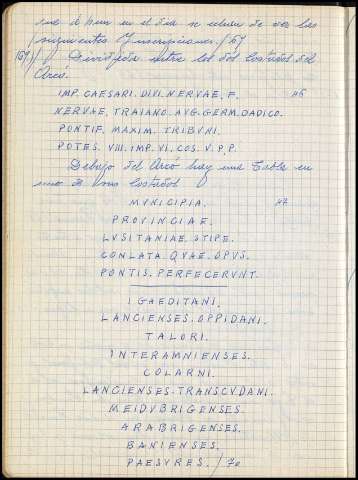 que á penas en el dia se echan de ver las
siguientes Ynscripciones. / 69
169 // Dividida entre los dos costados del
Arco.
IMP. CAESARI. DIVI. NERVAE. F. 46
NERVAE, TRAIANO. AVG. GERM. DADICO.
PONTIF. MAXIM. TRIBVNI.
POTES. VIII. IMP. VI. COS. V. P. P.
Debajo del Arcó hay una Tabla en
uno de sus Costados
MVNICIPIA. 47
PROVINCIAE.
LVSITANIAE. STIPE.
CONLATA. QVAE. OPVS.
PONTIS. PERFECERVNT.
IGAEDITANI.
LANCIENSES. OPPIDANI.
TALORI.
INTERAMNIENSES.
COLARNI.
LANCIENSES. TRANSCVDANI.
MEIDVBRIGENSES.
ARABRIGENSES.
BANIENSES.
PAESVRES. / 70